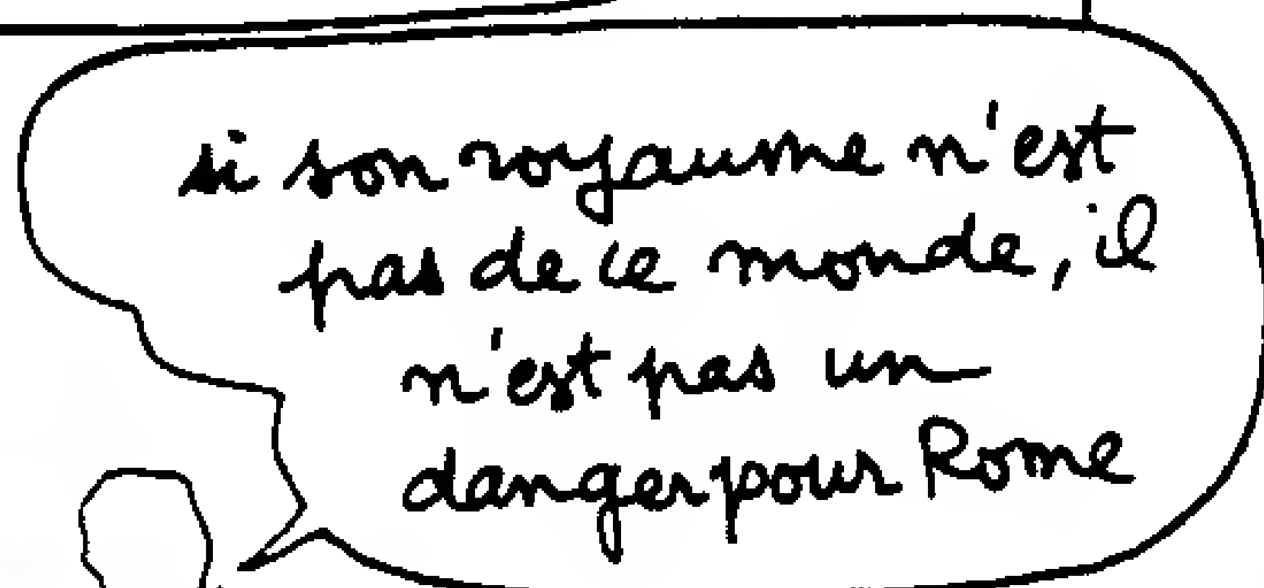 si son royaume n'est
pas de ce monde, il
n'est pas un
danger pour Rome